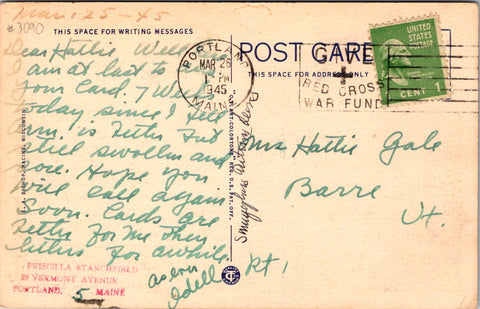 Mar. 25-45
#3090
THIS SPACE FOR WRITING MESSAGES
Dear Hattie Well
am at last to
your Card. 7 Weeks
today since I fell
arm is
still swollen and
sore. Hope you
will call again
Soon. Cards are
for me than
letters for awhile.
as ever
Idell
PRISCILLA STANCHFIELD
29 VERMONT AVENUE
PORTLAND, 5 MAINE
RACINE, WISCONSIN
"C.T. ART-COLORTONE" REG. U.S. PAT. OFF.
PORTLAND
MAR 26
PM
1945
MAINE
POST CARD
THIS SPACE FOR ADDRESS ONLY
GIVE
RED CROSS
WAR FUND
UNITED
STATES
POSTAGE
CENT 1
Mrs Hattie Gale
Barre
Vt.
Rt 1